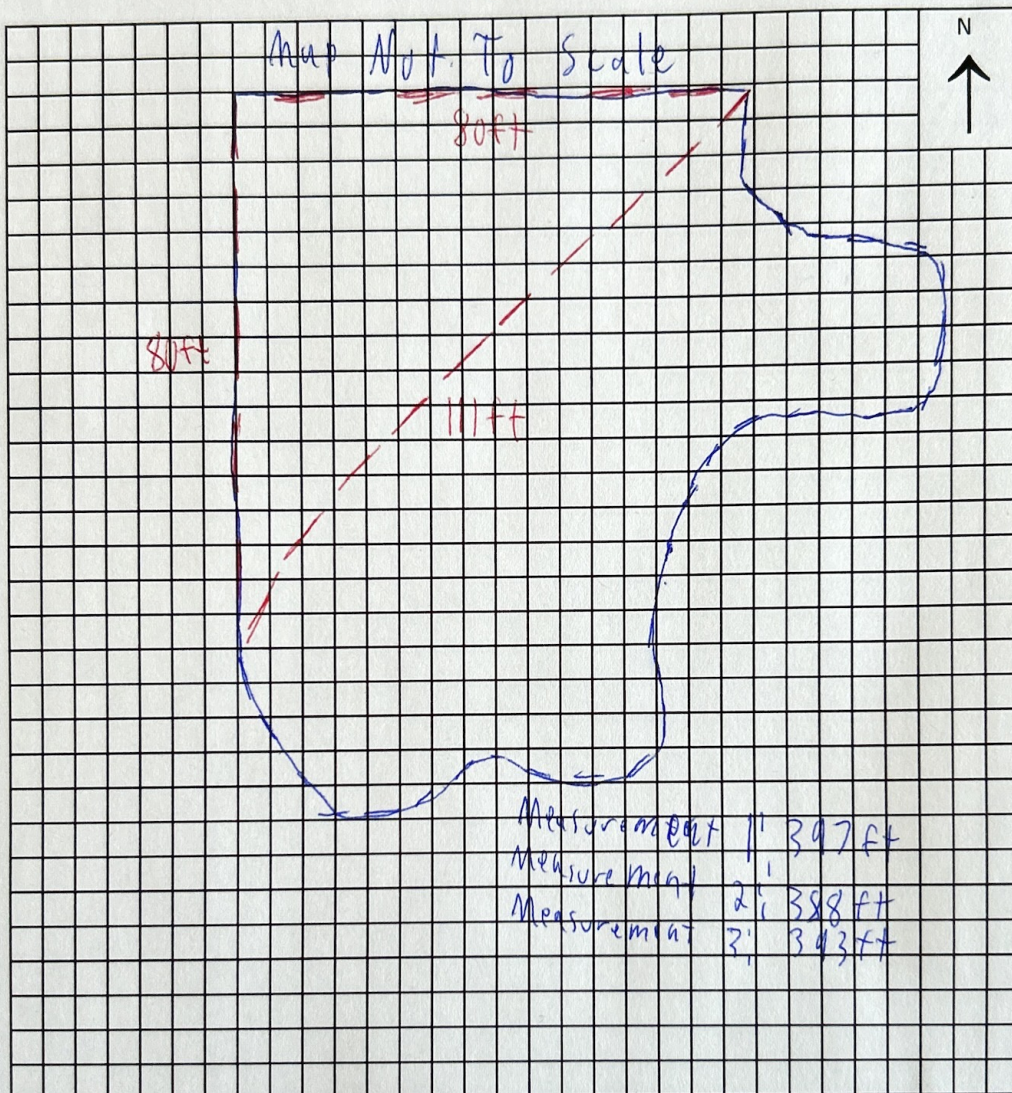 Map Not To Scale
N
80ft
80ft
111ft
Measurement 1: 397ft
Measurement 2: 388ft
Measurement 3: 393ft